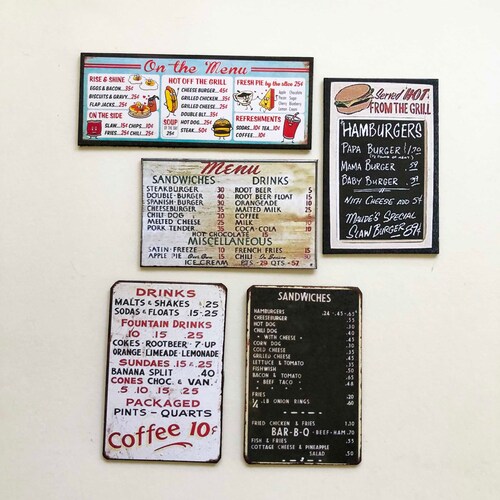 On the Menu
RISE & SHINE
EGGS & BACON...35¢
BISCUITS & GRAVY...25¢
FLAP JACKS...25¢
ON THE SIDE
SLAW...15¢ CHIPS...10¢
FRIES...15¢ CHILI...20¢
HOT OFF THE GRILL
CHEESE BURGER...45¢
GRILLED CHICKEN...35¢
GRILLED CHEESE...25¢
DOUBLE BLT...35¢
HOT DOG...20¢
STEAK...50¢
SOUP
OF THE DAY
25¢
FRESH PIE by the slice 25¢
Apple Chocolate
Cherry Blueberry
Lemon Cream
REFRESHMENTS
SODAS...10¢ TEA...10¢
COFFEE...10¢
Served HOT
FROM THE GRILL
HAMBURGERS
PAPA BURGER $1.70
MAMA BURGER
BABY BURGER
WITH CHEESE ADD 5¢
MAUDE'S SPECIAL
SLAW BURGER 89¢
Menu
SANDWICHES DRINKS
STEAKBURGER 30 ROOT BEER 5
DOUBLE-BURGER 40 ROOT BEER FLOAT 15
SPANISH-BURGER 30 ORANGEADE 10
CHEESEBURGER 35 MALTED MILK 25
CHILI DOG COFFEE 5
MELTED CHEESE 25 MILK 6
PORK TENDER 35 COCA-COLA 10
HOT CHOCOLATE 15
MISCELLANEOUS
SATIN-FREEZE 10 FRENCH FRIES 15
APPLE PIE 15 CHILI 25
ICE CREAM PTS-29 QTS-57
DRINKS
MALTS & SHAKES .25
SODAS & FLOATS .15-.25
FOUNTAIN DRINKS
.10 .15 .25
COKES·ROOTBEER·7·UP
ORANGE·LIMEADE·LEMONADE
SUNDAES .15 & .25
BANANA SPLIT .40
CONES CHOC. & VAN.
.5 .10 .15 .25
PACKAGED
PINTS - QUARTS
Coffee 10¢
SANDWICHES
HAMBURGERS .24 -.45-.65
CHEESEBURGER .55
HOT DOG .30
CHILI DOG .35
" WITH CHEESE "
CORN DOG
COLD CHEESE
GRILLED CHEESE
LETTUCE & TOMATO
FISHWISH
BACON & TOMATO
" BEEF TACO "
FRIES
¼ .LB ONION RINGS .60
FRIED CHICKEN & FRIES 1.30
BAR-B-Q - BEEF-HAM .70
FISH & FRIES
COTTAGE CHEESE & PINEAPPLE
SALAD .50